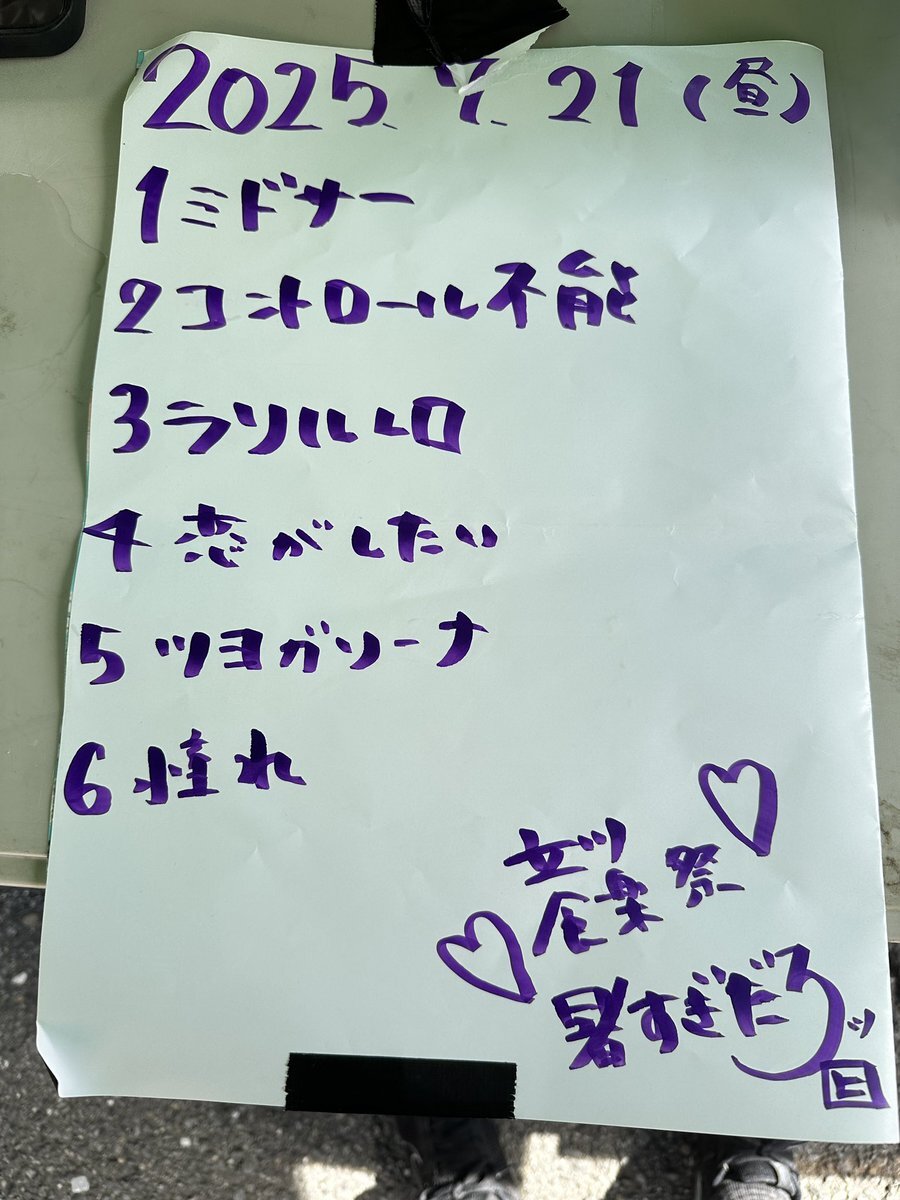 2025.7.21(昼)
1ミドサー
2コントロール不能
3ラソルレロ
4恋がしたい
5ツヨガソーナ
6憧れ
立ツ
音楽祭
暑すぎだろッ
ヒ